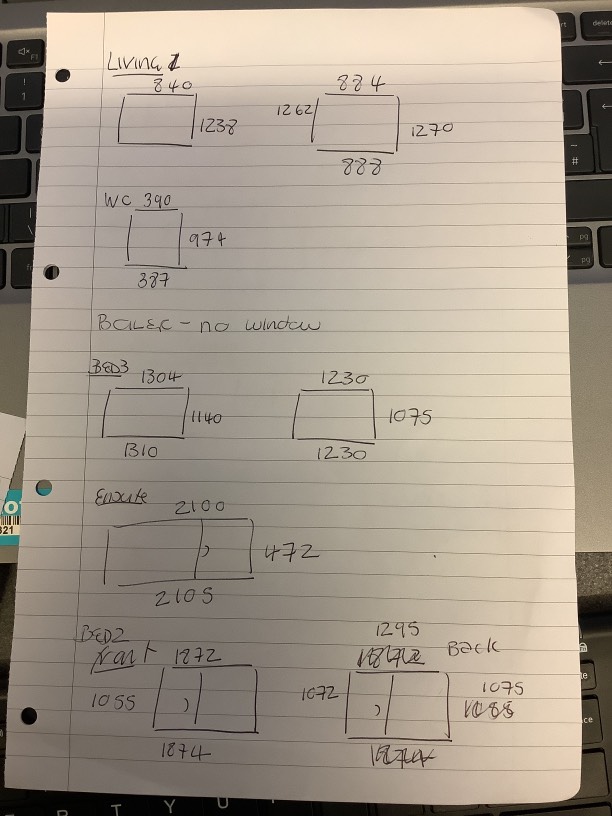 LIVING 1
840
1238
884
1262
1270
888
WC 390
974
387
BOILER - no window
BED3
1304
1140
1310
1230
1075
1230
Ensuite
2100
472
2105
BED2
Front 1872
1055
1874
1295
Back
1072
1075
1088